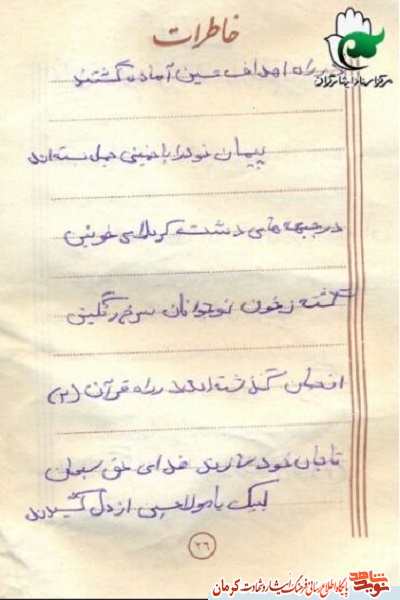 خاطرات
مرکز اسناد ایثارگران
در راه اهداف حسین آماده گشتند
پیمان خود را با خمینی بسته‌اند
در جبهه های دشت کربلای خونین
گشته ز خون نوجوانان سرخ رنگین
از جان گذشته‌اند در راه قرآن (۲)
تا جان خود سازند فدای حق سبحان
لبیک یا مولا حسین از دل کشیدند
۲۶
نوید شاهد پایگاه اطلاع رسانی فرهنگ ایثار و شهادت کرمان